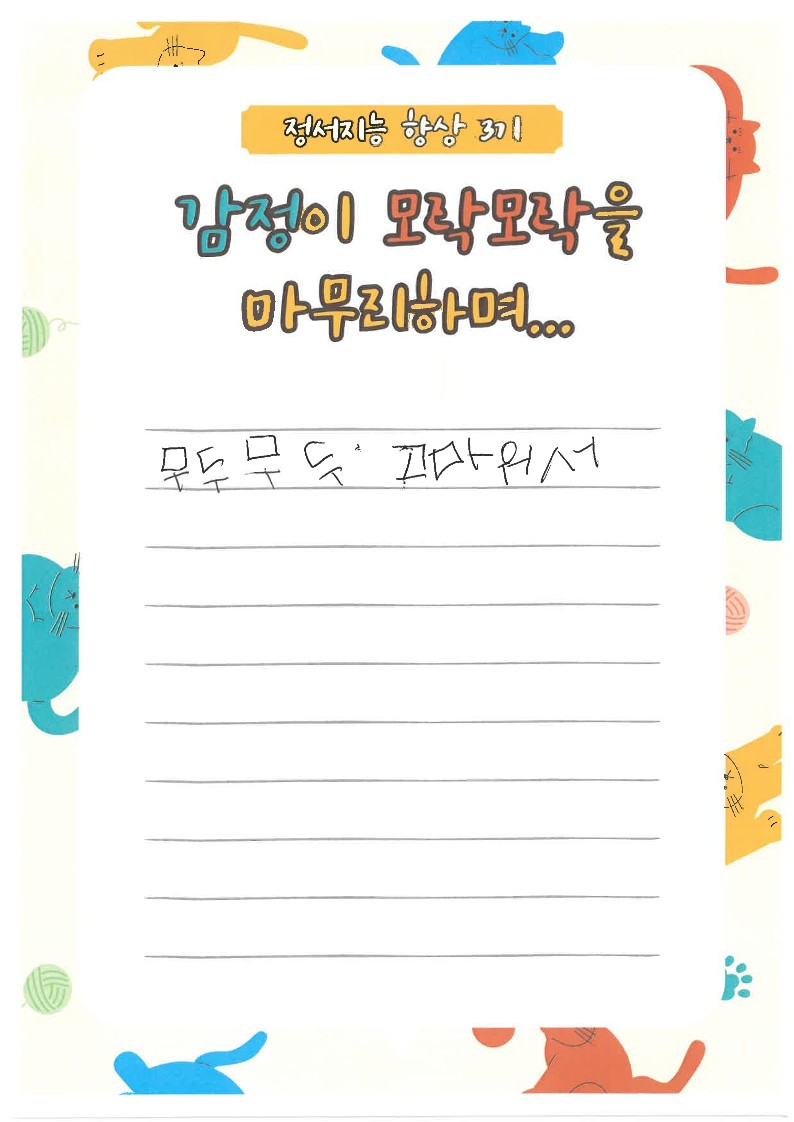 정서지능 향상 3기
감정이 모락모락을
마무리하며...
모두모두 고마워서